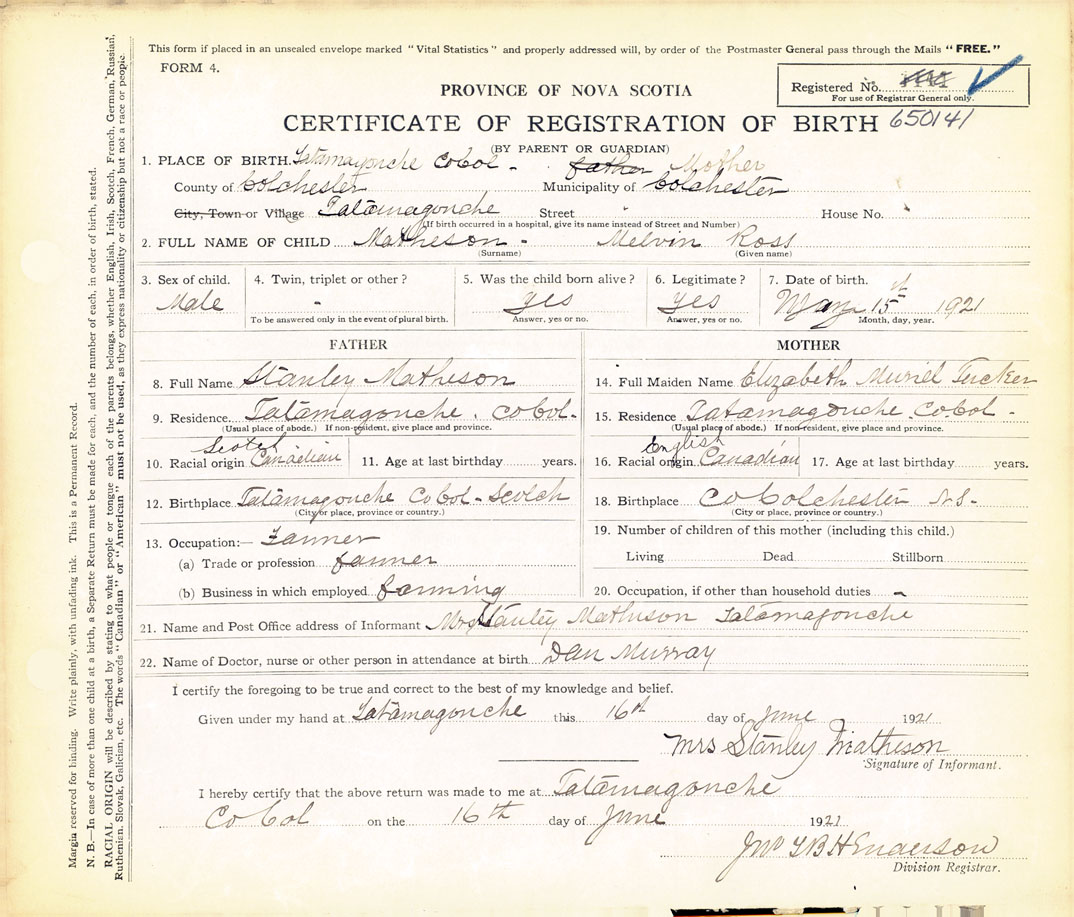 This form if placed in an unsealed envelope marked "Vital Statistics" and properly addressed will, by order of the Postmaster General pass through the Mails "FREE."
FORM 4.
PROVINCE OF NOVA SCOTIA
Registered No.
For use of Registrar General only.
CERTIFICATE OF REGISTRATION OF BIRTH 650141
(BY PARENT OR GUARDIAN)
1. PLACE OF BIRTH. Tatamagouche Co Col - father Mother
County of Colchester Municipality of Colchester
City, Town or Village Tatamagouche Street House No.
(If birth occurred in a hospital, give its name instead of Street and Number)
2. FULL NAME OF CHILD Matheson - Melvin Ross
(Surname) (Given name)
3. Sex of child. 4. Twin, triplet or other? 5. Was the child born alive? 6. Legitimate? 7. Date of birth.
Male - yes yes May 15 1921
To be answered only in the event of plural birth. Answer, yes or no. Answer, yes or no. Month, day, year.
FATHER MOTHER
8. Full Name Stanley Matheson 14. Full Maiden Name Elizabeth Muriel Tucker
9. Residence Tatamagouche. Co Col- 15. Residence Tatamagouche Co Col -
(Usual place of abode.) If non-resident, give place and province. (Usual place of abode.) If non-resident, give place and province.
Scotch English
10. Racial origin Canadian 11. Age at last birthday years. 16. Racial origin Canadian 17. Age at last birthday years.
12. Birthplace Tatamagouche Co Col - Scotch 18. Birthplace Co Colchester N-S-
(City or place, province or country.) (City or place, province or country.)
13. Occupation:— Farmer 19. Number of children of this mother (including this child.)
(a) Trade or profession farmer Living Dead Stillborn
(b) Business in which employed farming 20. Occupation, if other than household duties -
21. Name and Post Office address of Informant Mrs Stanley Matheson Tatamagouche
22. Name of Doctor, nurse or other person in attendance at birth Dan Murray
I certify the foregoing to be true and correct to the best of my knowledge and belief.
Given under my hand at Tatamagouche this 16th day of June 1921
Mrs Stanley Matheson
Signature of Informant.
I hereby certify that the above return was made to me at Tatamagouche
Co Col on the 16th day of June 1921
Jno Henderson
Division Registrar.
Margin reserved for binding. Write plainly, with unfading ink. This is a Permanent Record.
N. B.—In case of more than one child at a birth, a Separate Return must be made for each, and the number of each, in order of birth, stated.
RACIAL ORIGIN will be described by stating to what people or tongue each of the parents belongs, whether English, Irish, Scotch, French, German, Russian,
Ruthenian, Slovak, Galician, etc. The words "Canadian" or "American" must not be used, as they express nationality or citizenship but not a race or people